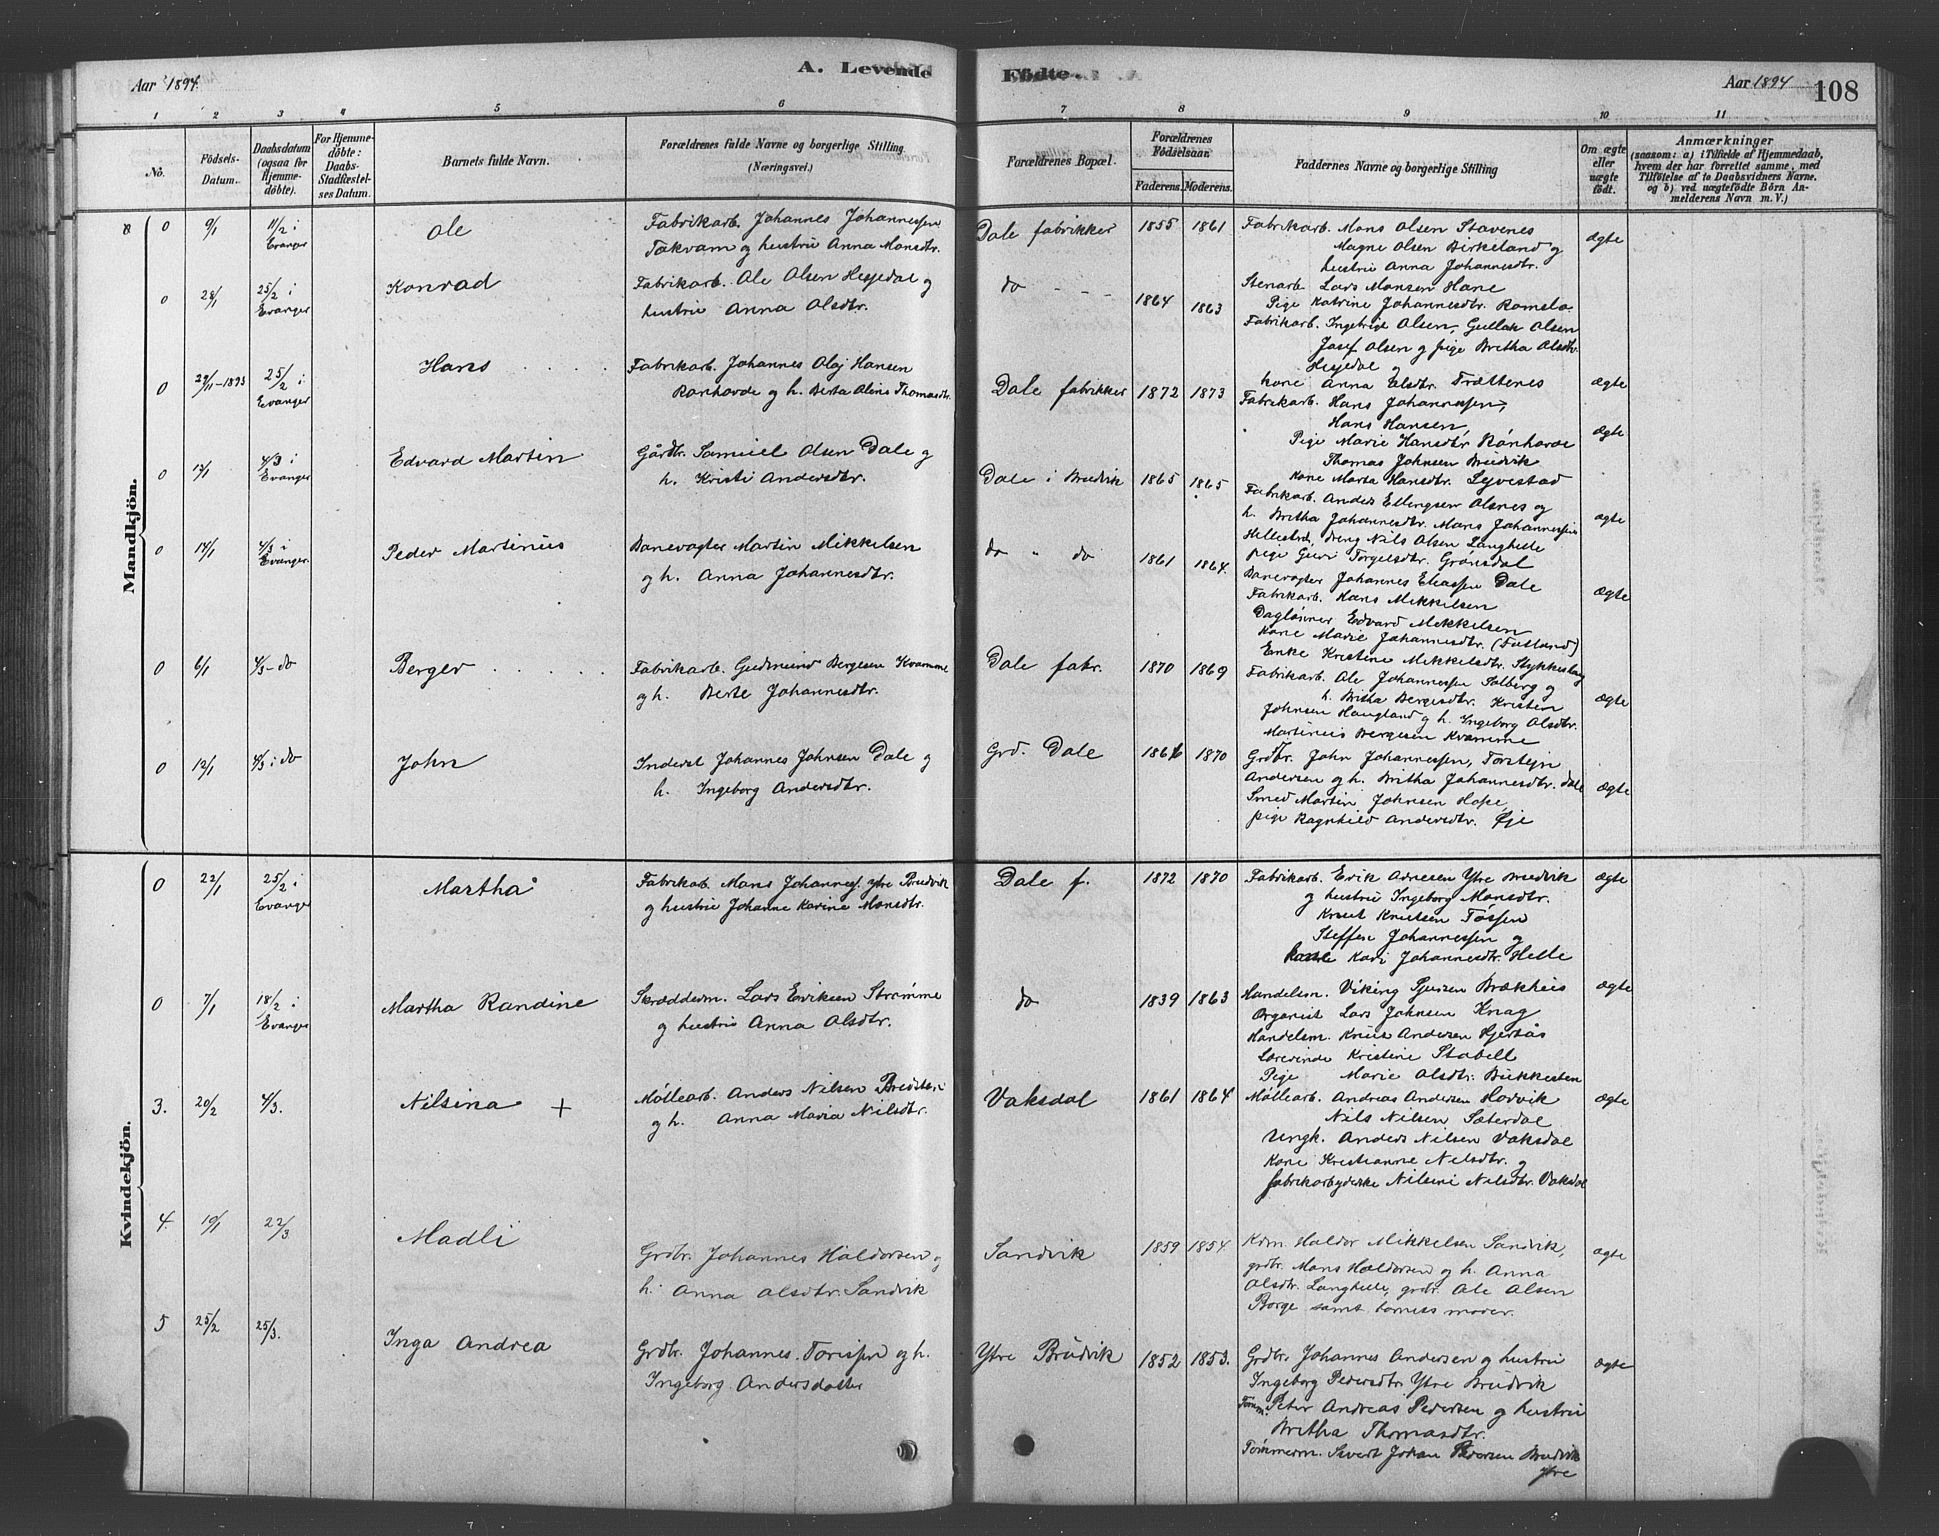 Aar 1894.
A. Levende
Födte.
Aar 1894
108
1 2 3 4 5 6 7 8 9 10 11
No.
Födsels-Datum.
Daabsdatum (ogsaa för Hjemme-döbte).
For Hjemme-döbte: Daabs-Stadfæstel-ses Datum.
Barnets fulde Navn.
Forældrenes fulde Navne og borgerlige Stilling. (Næringsvei.)
Forældrenes Bopæl.
Forældrenes Födselsaar.
Faderens. Moderens.
Faddernes Navne og borgerlige Stilling
Om ægte eller uægte födt.
Anmærkninger
(saasom: a) i Tilfælde af Hjemmedaab,
hvem der har forrettet samme, med
Tilföielse af to Daabsvidners Navne,
og b) ved uægtefödte Börn An-
melderens Navn m. V.)
Mandkjön.
0 9/1 11/2 i Evanger
Ole
Fabrikarb. Johannes Johannessen
Takvam og hustru Anna Monsdtr.
Dale fabrikker 1855 1861
Fabrikarb. Mons Olsen Stavenes
Magne Olsen Birkeland og
hustru Anna Johannesdtr.
ægte
0 28/1 25/2 i Evanger
Konrad
Fabrikarb. Ole Olsen Hesjedal og
hustru Anna Olsdtr.
do - - - 1864 1863
Stenarb. Lars Monsen Hane
Pige Katrine Johannesdtr. Romslo.
Fabrikarb. Ingebrigt Olsen, Gullak Olsen
Josef Olsen og pige Britha Olsdtr.
Hesjedal og
kone Anna Elsdtr. Trættenes
ægte
0 29/11-1893 25/2 i Evanger
Hans
Fabrikarb. Johannes Olaj Hansen
Ronhovde og h. Berta Oline Thomasdtr.
Dale fabrikker 1872 1873
Fabrikarb. Hans Johannessen,
Hans Hansen,
Pige Marie Hansdtr. Rönhovde
Thomas Johnsen Brudvik
Kone Marta Hansdtr. Lyvestad
ægte
0 17/1 4/3 i Evanger
Edvard Martin
Gårdbr. Samuel Olsen Dale og
h. Kristi Andersdtr.
Dale i Brudvik 1865 1865
Fabrikarb. Anders Ellengsen Olsnes og
h. Britha Johannesdtr. Mons Johannessen
Hellestve, dreng Nils Olsen Langhelle
pige Guri Torgelsdtr. Grönsdal
ægte
0 14/1 4/3 i Evanger.
Peder Martinus
Banevogter Martin Mikkelsen
og h. Anna Johannesdtr.
do " do 1861 1864.
Banevogter Johannes Eliassen Dale
Fabrikarb. Hans Mikkelsen
Daglønner Edvard Mikkelsen
Kone Marie Johannesdtr. (Fosland)
Enke Kristine Mikkelsdtr. Stykkeslag
ægte
0 6/1 4/3 - do
Berger . . . .
Fabrikarb. Gudmund Bergesen Kvamme
og h. Berte Johannesdtr.
Dale fabr. 1870 1869
Fabrikarb. Ole Johannessen Solberg og
h. Britha Bergesdtr. Kristen
Johnsen Haugland og h. Ingeborg Olsdtr.
Martinus Bergesen Kvamme
ægte
0 12/1 4/3 i do
John
Inderst Johannes Johnsen Dale og
h. Ingeborg Andersdtr.
Grd. Dale 1866 1870
Grdbr. John Johannessen, Torstejn
Andersen og h. Britha Johannesdtr. Dale
Smed Martin Johnsen Hope,
pige Ragnhild Andersdtr. Øje
ægte
Kvindekjön.
0 22/1 25/2 i Evanger
Martha
Fabrikarb. Mons Johannes. ytre Brudvik
og hustru Johanne Karine Monsdtr.
Dale f. 1872 1870
Fabrikarb. Erik Arnesen Ytre Brudvik
og hustru Ingeborg Monsdtr.
Knut Knutsen Tössen
Steffen Johannessen og
Kone Kari Johannesdtr. Helle
ægte
0 7/1 18/2 i Evanger
Martha Randine
Skrædderm. Lars Eriksen Strömme
og hustru Anna Olsdtr.
do 1839 1863
Handelsm. Viking Sjursen Brækhus
Organist Lars Johnsen Knag
Handelsm. Knut Andersen Hjertås
Lærerinde Kristine Stabell
Pige Marie Olsdtr. Bukkesten
ægte
3. 20/2 4/3.
Nilsina +
Møllearb. Anders Nilsen
og h. Anna Maria Nilsdtr.
Vaksdal 1861 1864
Møllearb. Andreas Andersen Hodvik
Nils Nilsen Sæterdal
Ungk. Anders Nilsen Vaksdal
Kone Kristianne Nilsdtr. og
fabrikarbyderske Nilsine Nilsdtr. Vaksdal
ægte
4. 19/1 22/3
Madli
Grdbr. Johannes Haldorsen og
h. Anna Olsdtr. Sandvik
Sandvik 1859 1854
Kdm. Haldor Mikkelsen Sandvik,
grdbr. Mons Haldorsen og h. Anna
Olsdtr. Langhelle, grdbr. Ole Olsen
Borge samt barnets moder.
ægte
5 25/2 25/3.
Inga Andrea
Grdbr. Johannes Torissen og h.
Ingeborg Andersdatter
Ytre Brudvik 1852 1853.
Grdbr. Johannes Andersen og hustru
Ingeborg Pedersdtr. Ytre Brudvik
Tømm. Peter Andreas Pedersen og hustru
Britha Thomasdtr.
Tömmerm. Sivert Johan Pedersen Brudvik
ytre
ægte